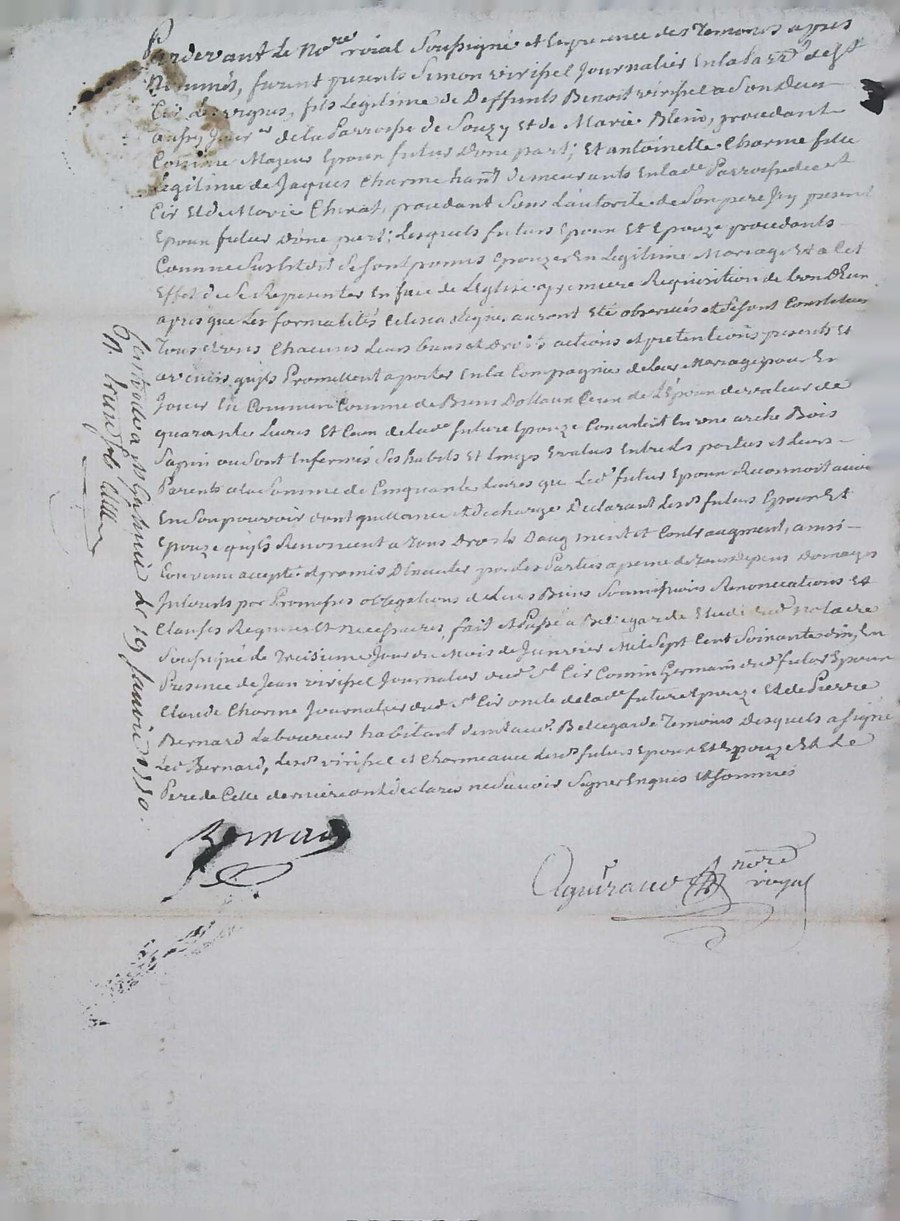 Pardevant Le No.re roial Soussigné et Enpresence des Temoins appres
Nommés, furent presents Simon virissel Journalier Enlaba de St
Cir Les vignes, fils Legitime de Deffunts Benoit virissel a Son
Jour.er de la Parroisse de Souzy et de Marie Blein, procedant
Comme Majeur Epoux futur Dune part; Et antoinette Charme fille
Legitime de Jaques Charme han.t demeurants Enlad. Parroissede St
Cir Et de Marie Chirat, procedant Sous Lautorité de Son pere Icy present
Epoux futur Dune part; Lesquels futurs Epoux Et Epouze procedants
Comme Sus Se sont promis Epouzer En Legitime Mariage Et a Cet
Effet de Se Representer En face de Léglise apremiere Requisition de Lun D'eux
apres que Les formalités auront Eté observeés et Sesont Constitués
Tous Chacuns Leurs biens et Droits actions et pretentions presents Et
avenirs quils Promettent aporter Enla Compagnie de leur Mariage pour En
Jouir En Commun Comme de Biens Dottaux Ceux de L'Epoux de valeur de
quarante Livres Et Ceux de lad. future Epouze Consistent En une arche Bois
Sapin ou Sont Enfermés Ses habits Et linges Evalués Entre Les parties et Leurs
Parents ala Somme de Cinquante Livres que Led. futur Epoux Reconnoit avoir
En Son pouvoir dont quittance et decharge Declarant Lesd. futurs Epoux Et
Epouze quils Renoncent a Tous Droits Daugment et Contraugment, ainsi
Convenu accepté et promis D'Executer par Les Parties apeine de Tous depens Domages
Interets par Promesses obligations de Leurs Biens Soumissions Renonciations Et
Clauses Requises Et necessaires, fait et Passé a Bellegarde Etude dud. notaire
Soussigné Le Treisieme Jour du Mois de Janvier Mil Sept Cent Soixante dix, En
Presence de Jean virissel Journalier dud. St. Cir Cousin Germain dud. futur Epoux
Claude Charme Journalier dud. St. Cir oncle delad. future Epouze Et de Pierre
Bernard Laboureur habitant Bellegarde Temoins Desquels a Signé
Led. Bernard, Lesd. virissel et Charme avec Lesd. futurs Epoux Et Epouze Et Le
Pere de Cette derniere ont declarés ne Savoir Signer Enquis Et Sommés
Bernard
Aguiraud nore royal
Controllé a St Galmier Le 19 Janvier 1770.